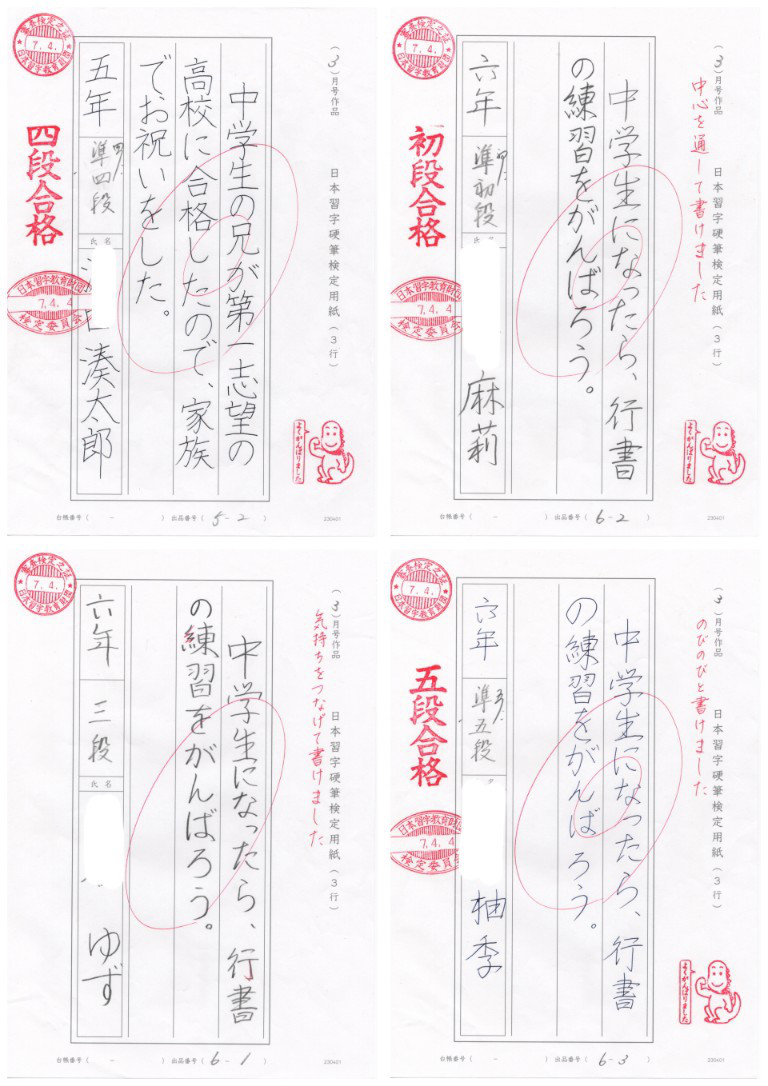 (3)月号作品
日本習字硬筆検定用紙(3行)
中学生の兄が第一志望の
高校に合格したので、家族
でお祝いをした。
五年
準四段
氏名
湊太郎
審査検定之証
7.4.
日本習字教育財団
四段合格
日本習字教育財団
7.4.4
検定委員会
よくがんばりました
台帳番号( - ) 出品番号( 5-2 )
230401
(3)月号作品
中心を通して書けました
日本習字硬筆検定用紙(3行)
中学生になったら、行書
の練習をがんばろう。
六年
準初段
氏名
麻莉
審査検定之証
7.4.
日本習字教育財団
初段合格
日本習字教育財団
7.4.4
検定委員会
よくがんばりました
台帳番号( - ) 出品番号( 6-2 )
230401
(3)月号作品
日本習字硬筆検定用紙(3行)
気持ちをつなげて書けました
中学生になったら、行書
の練習をがんばろう。
六年
三段
氏名
ゆず
審査検定之証
7.4.
日本習字教育財団
台帳番号( - ) 出品番号( 6-1 )
230401
(3)月号作品
のびのびと書けました
日本習字硬筆検定用紙(3行)
中学生になったら、行書
の練習をがんばろう。
六年
準五段
柚季
審査検定之証
7.4.
日本習字教育財団
五段合格
日本習字教育財団
7.4.4
検定委員会
よくがんばりました
台帳番号( - ) 出品番号( 6-3 )
230401